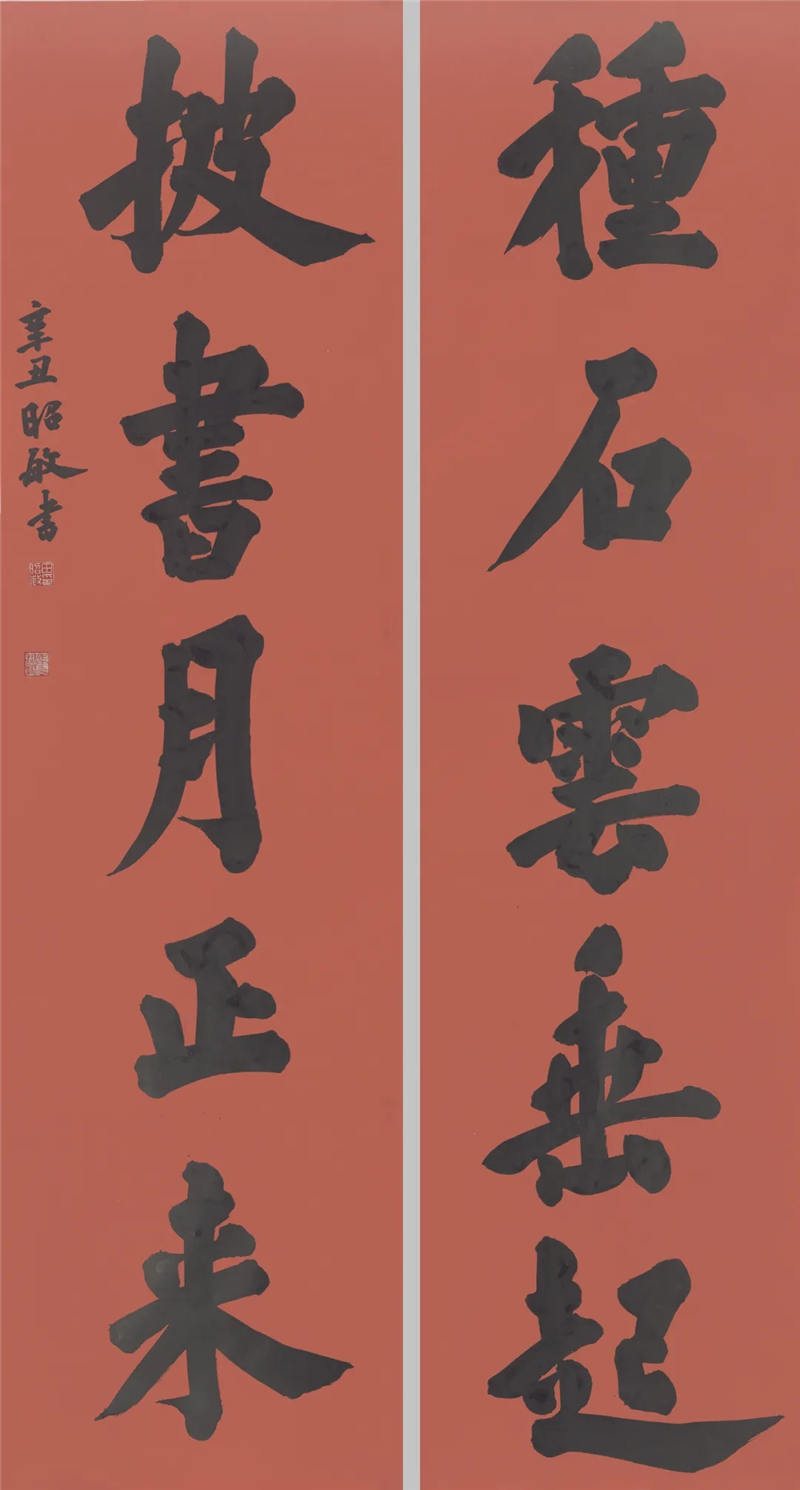 種石雲垂起
披書月正来
辛丑昭敏书